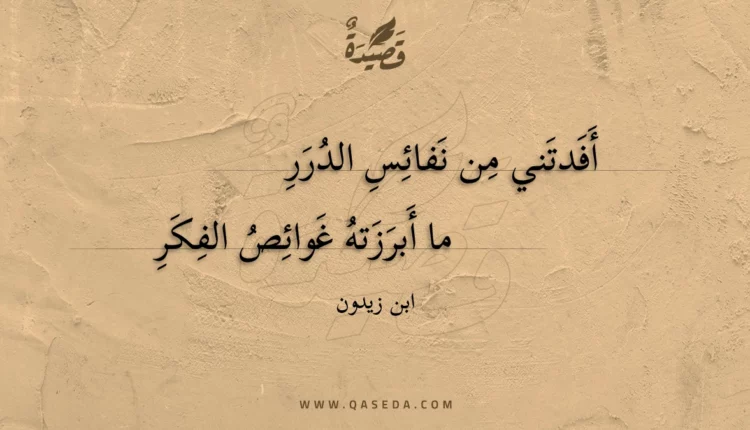 قَصِيدَةٌ
أَفَدتَني مِن نَفائِسِ الدُرَرِ
ما أَبرَزَتهُ غَوائِصُ الفِكَرِ
ابن زيدون
WWW.QASEDA.COM